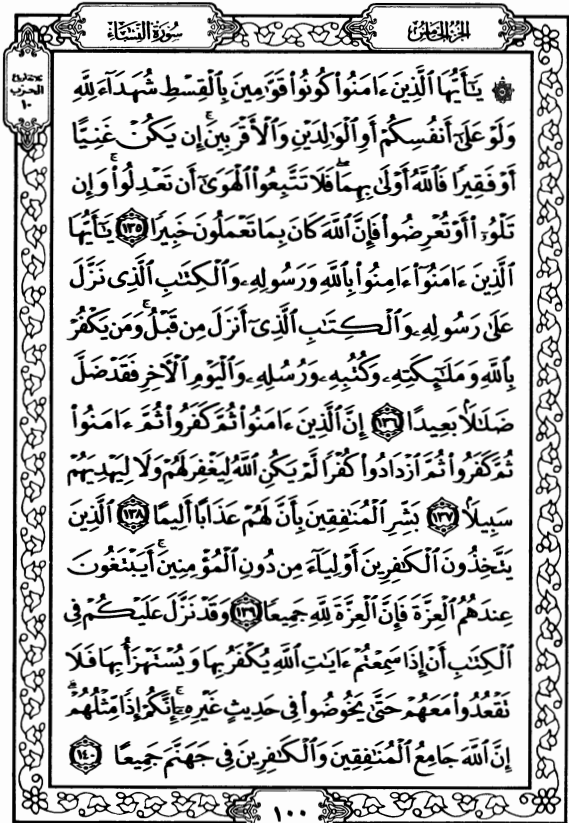 سُورَةُ النِّسَاءِ
الجُزْءُ الخَامِسُ
الحِزْب
١٠
۞ يَـٰٓأَيُّهَا ٱلَّذِينَ ءَامَنُوا۟ كُونُوا۟ قَوَّٰمِينَ بِٱلْقِسْطِ شُهَدَآءَ لِلَّهِ
وَلَوْ عَلَىٰٓ أَنفُسِكُمْ أَوِ ٱلْوَٰلِدَيْنِ وَٱلْأَقْرَبِينَ ۚ إِن يَكُنْ غَنِيًّا
أَوْ فَقِيرًا فَٱللَّهُ أَوْلَىٰ بِهِمَا ۖ فَلَا تَتَّبِعُوا۟ ٱلْهَوَىٰٓ أَن تَعْدِلُوا۟ ۚ وَإِن
تَلْوُۥٓا۟ أَوْ تُعْرِضُوا۟ فَإِنَّ ٱللَّهَ كَانَ بِمَا تَعْمَلُونَ خَبِيرًا ١٣٥ يَـٰٓأَيُّهَا
ٱلَّذِينَ ءَامَنُوٓا۟ ءَامِنُوا۟ بِٱللَّهِ وَرَسُولِهِۦ وَٱلْكِتَـٰبِ ٱلَّذِى نَزَّلَ
عَلَىٰ رَسُولِهِۦ وَٱلْكِتَـٰبِ ٱلَّذِىٓ أَنزَلَ مِن قَبْلُ ۚ وَمَن يَكْفُرْ
بِٱللَّهِ وَمَلَـٰٓئِكَتِهِۦ وَكُتُبِهِۦ وَرُسُلِهِۦ وَٱلْيَوْمِ ٱلْـَٔاخِرِ فَقَدْ ضَلَّ
ضَلَـٰلًۢا بَعِيدًا ١٣٦ إِنَّ ٱلَّذِينَ ءَامَنُوا۟ ثُمَّ كَفَرُوا۟ ثُمَّ ءَامَنُوا۟
ثُمَّ كَفَرُوا۟ ثُمَّ ٱزْدَادُوا۟ كُفْرًا لَّمْ يَكُنِ ٱللَّهُ لِيَغْفِرَ لَهُمْ وَلَا لِيَهْدِيَهُمْ
سَبِيلًۢا ١٣٧ بَشِّرِ ٱلْمُنَـٰفِقِينَ بِأَنَّ لَهُمْ عَذَابًا أَلِيمًا ١٣٨ ٱلَّذِينَ
يَتَّخِذُونَ ٱلْكَـٰفِرِينَ أَوْلِيَآءَ مِن دُونِ ٱلْمُؤْمِنِينَ ۚ أَيَبْتَغُونَ
عِندَهُمُ ٱلْعِزَّةَ فَإِنَّ ٱلْعِزَّةَ لِلَّهِ جَمِيعًا ١٣٩ وَقَدْ نَزَّلَ عَلَيْكُمْ فِى
ٱلْكِتَـٰبِ أَنْ إِذَا سَمِعْتُمْ ءَايَـٰتِ ٱللَّهِ يُكْفَرُ بِهَا وَيُسْتَهْزَأُ بِهَا فَلَا
تَقْعُدُوا۟ مَعَهُمْ حَتَّىٰ يَخُوضُوا۟ فِى حَدِيثٍ غَيْرِهِۦٓ ۚ إِنَّكُمْ إِذًا مِّثْلُهُمْ ۗ
إِنَّ ٱللَّهَ جَامِعُ ٱلْمُنَـٰفِقِينَ وَٱلْكَـٰفِرِينَ فِى جَهَنَّمَ جَمِيعًا ١٤٠
١٠٠